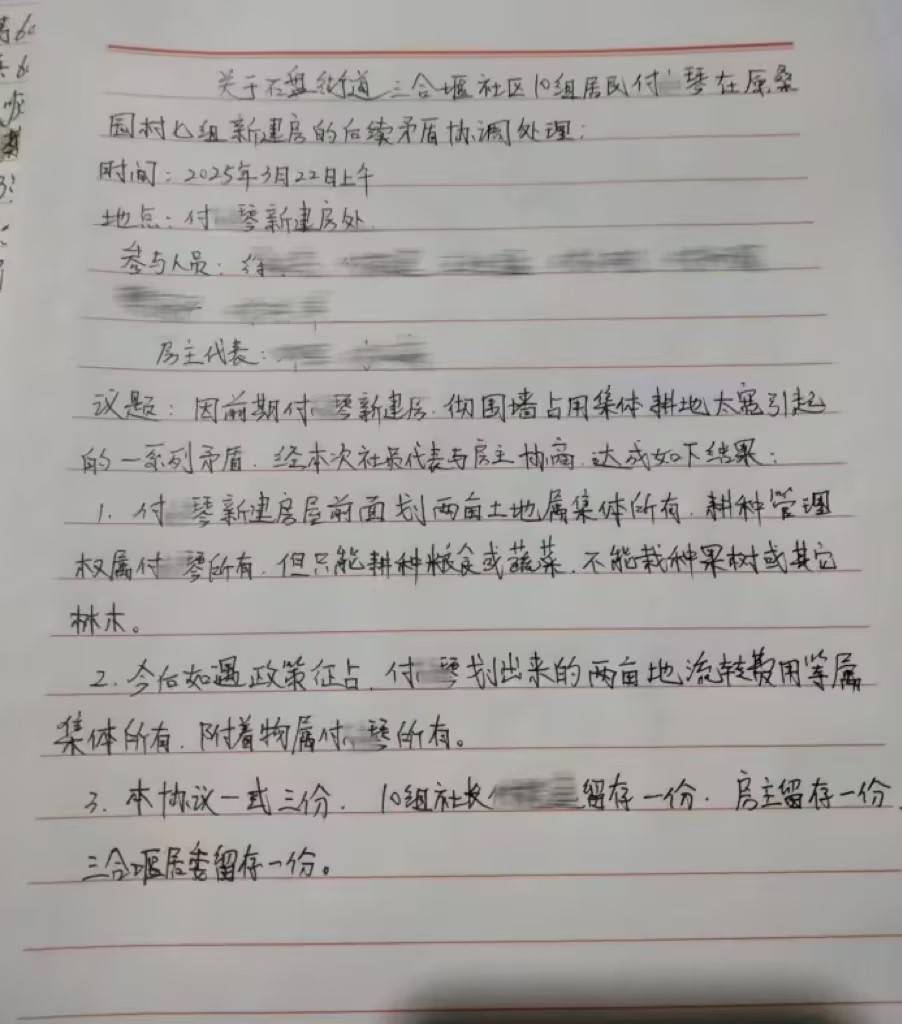 关于石盘街道三合堰社区10组居民付 琴在原桑
园村七组新建房的后续矛盾协调处理:
时间:2025年3月22日上午
地点:付 琴新建房处
参与人员:徐
房主代表:
议题:因前期付 琴新建房.彻围墙占用集体耕地太宽引起
的一系列矛盾.经本次社员代表与房主协商.达成如下结果:
1.付 琴新建房屋前面划两亩土地属集体所有.耕种管理
权属付 琴所有.但只能耕种粮食或蔬菜.不能栽种果树或其它
林木。
2.今后如遇政策征占.付 琴划出来的两亩地流转费用等属
集体所有.附着物属付 琴所有。
3.本协议一式三份.10组社长 留存一份.房主留存一份
三合堰居委留存一份。